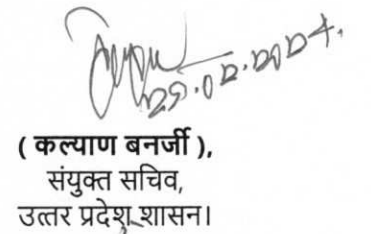 29.02.2024.
( कल्याण बनर्जी ),
संयुक्त सचिव,
उत्तर प्रदेश शासन।